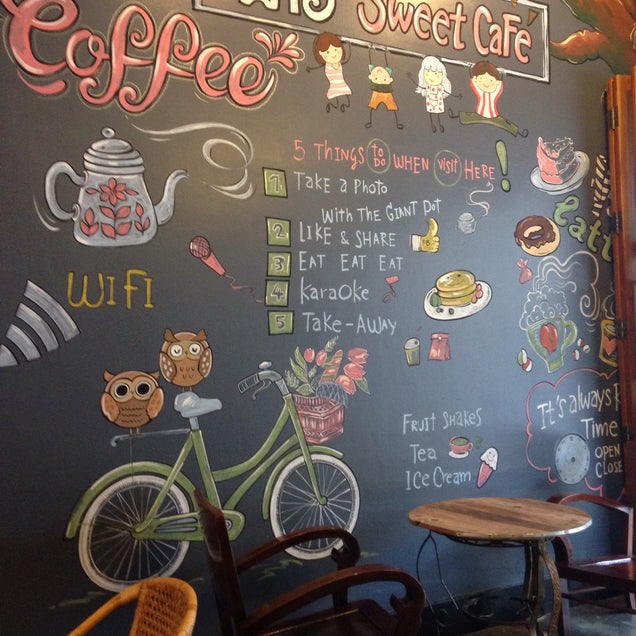 Sweet Cafe
Coffee
5 THINGS to do WHEN visit HERE!
1. Take a Photo
With The GIant Dot
2 LIKE & SHARE
3 EAT EAT EAT
4 karaOke
5 Take-Away
WIFI
FRUIT SHAKES
Tea
Ice Cream
It's always
Time
OPEN
CLOSE